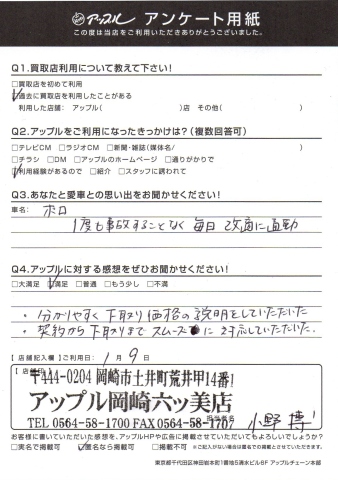 アップル アンケート用紙
この度は当店をご利用いただきありがとうございました。
Q1.買取店利用について教えて下さい!
□買取店を初めて利用
☑過去に買取店を利用したことがある
利用した店舗: アップル( )店 その他( )
Q2.アップルをご利用になったきっかけは?(複数回答可)
□テレビCM □ラジオCM □新聞・雑誌(媒体名/ )
□チラシ □DM □アップルのホームページ □通りがかりで
☑利用経験があるので □紹介 □スタッフに誘われて
Q3.あなたと愛車との思い出をお聞かせください!
車名: ポロ
1度も事故することなく毎日
Q4.アップルに対する感想をぜひお聞かせください!
□大満足 ☑満足 □普通 □もう少し □不満
・分かりやすく下取り価格の説明をしていただいた
・契約から下取りまでスムーズに対応していただいた.
【店舗記入欄】ご利用日: 1月9日
〒444-0204 岡崎市土井町荒井甲14番1
アップル岡崎六ッ美店
TEL 0564-58-1700 FAX 0564-58-1707
担当者名
小野 博
お客様に書いていただいた感想を、アップルHPや広告に掲載させていただいてもよろしいでしょうか?
□実名で掲載可 ☑匿名なら掲載可 □掲載不可 ※ご記入がない場合は匿名での掲載とさせていただきます。
東京都千代田区神田岩本町1番地5清水ビル6F アップルチェーン本部